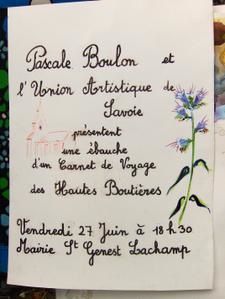 Pascale Boulon et
l'Union Artistique de
Savoie
présentent
une ébauche
d'un Carnet de Voyage
des Hautes Boutières
Vendredi 27 Juin à 18h30
Mairie St Genest Lachamp